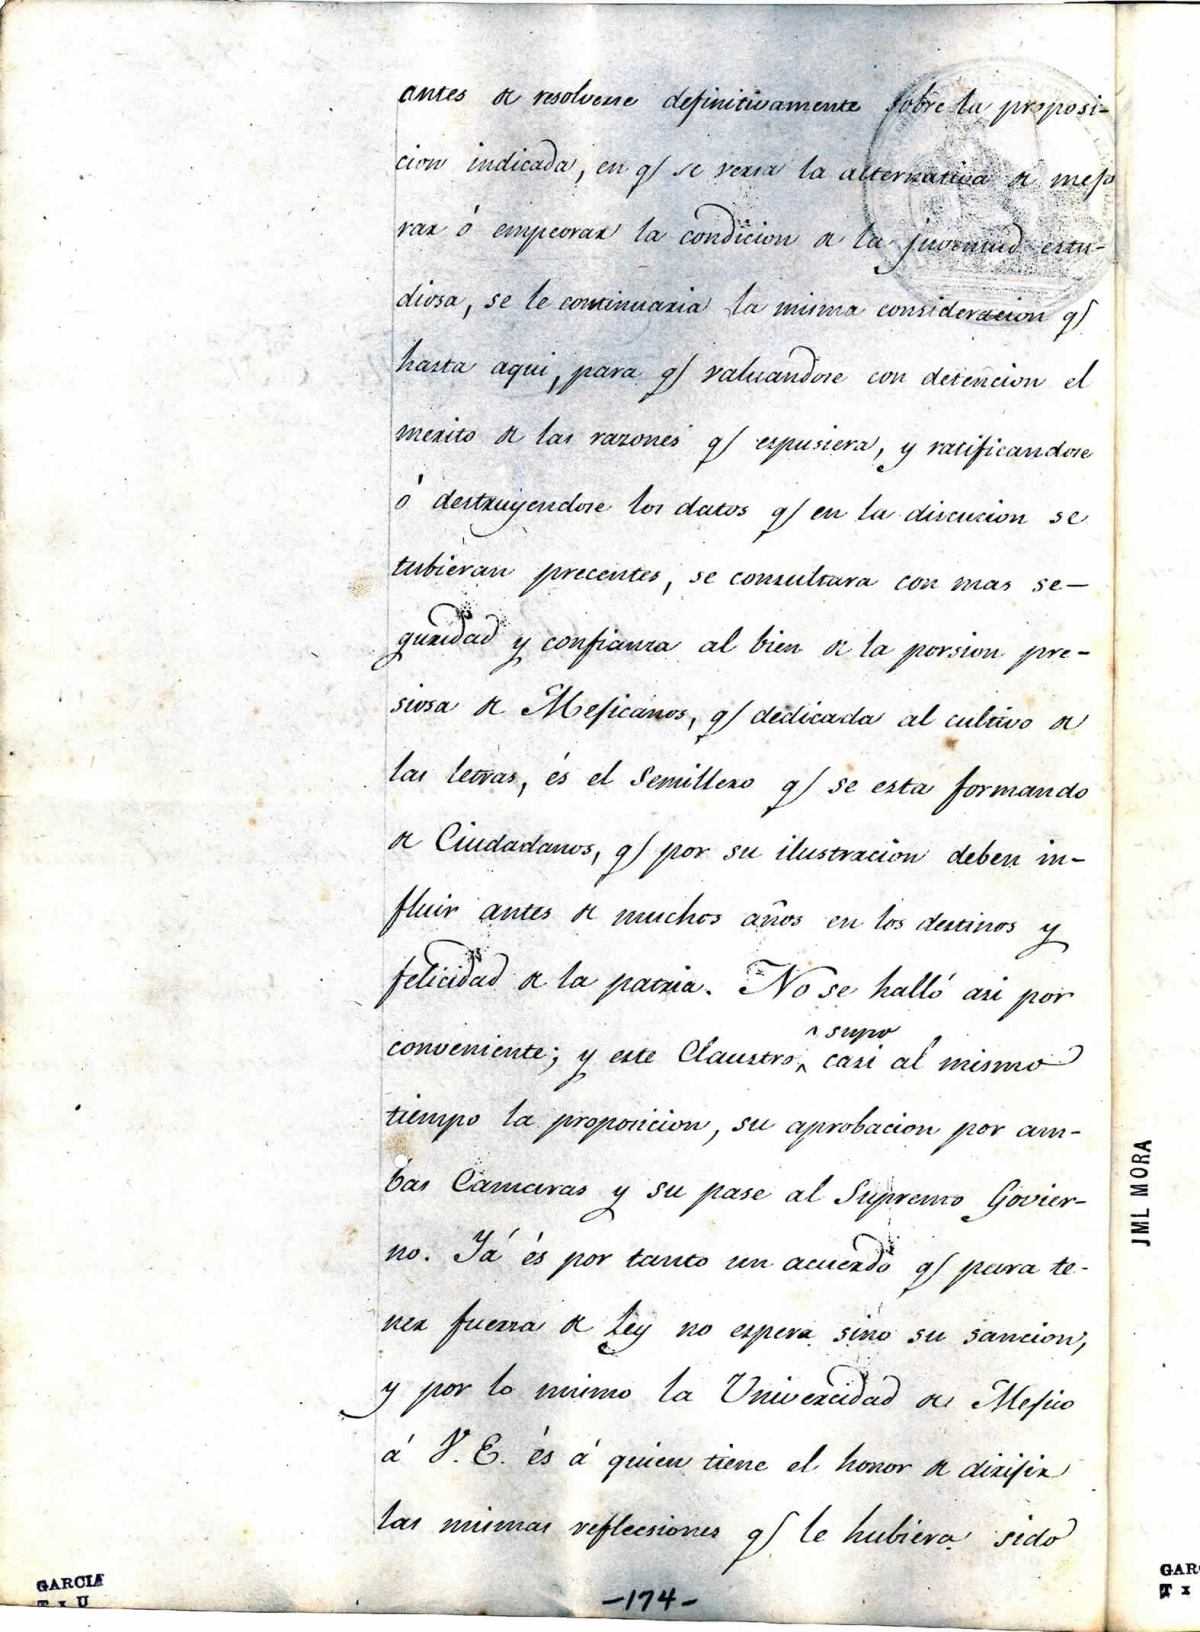 antes de resolverse definitivamente sobre la proposi-
cion indicada, en q/ se versa la alternativa de mejo
rar ó empeorar la condicion de la juventud estu-
diosa, se le continuaria la misma consideracion q/
hasta aqui, para q/ valuandose con detencion el
merito de las razones q/ espusiera, y ratificandose
ó destruyendose los datos q/ en la discucion se
tubieran precentes, se consultara con mas se-
guridad y confianza al bien de la porsion pre-
siosa de Mejicanos, q/ dedicada al cultivo de
las letras, és el Semillero q/ se esta formando
de Ciudadanos, q/ por su ilustracion deben in-
fluir antes de muchos años en los destinos y
felicidad de la patria. No se halló asi por
conveniente; y este Claustro, ^ supo casi al mismo
tiempo la proposicion, su aprobacion por am-
bas Camaras y su pase al Supremo Govier-
no. Yá és por tanto un acuerdo q/ para te-
ner fuerza de Ley no espera sino su sancion,
y por lo mismo la Univercidad de Mejico
á V. E. és á quien tiene el honor de dirijir
las mismas reflecsiones q/ le hubiera sido
-174-
GARCIA
JML MORA